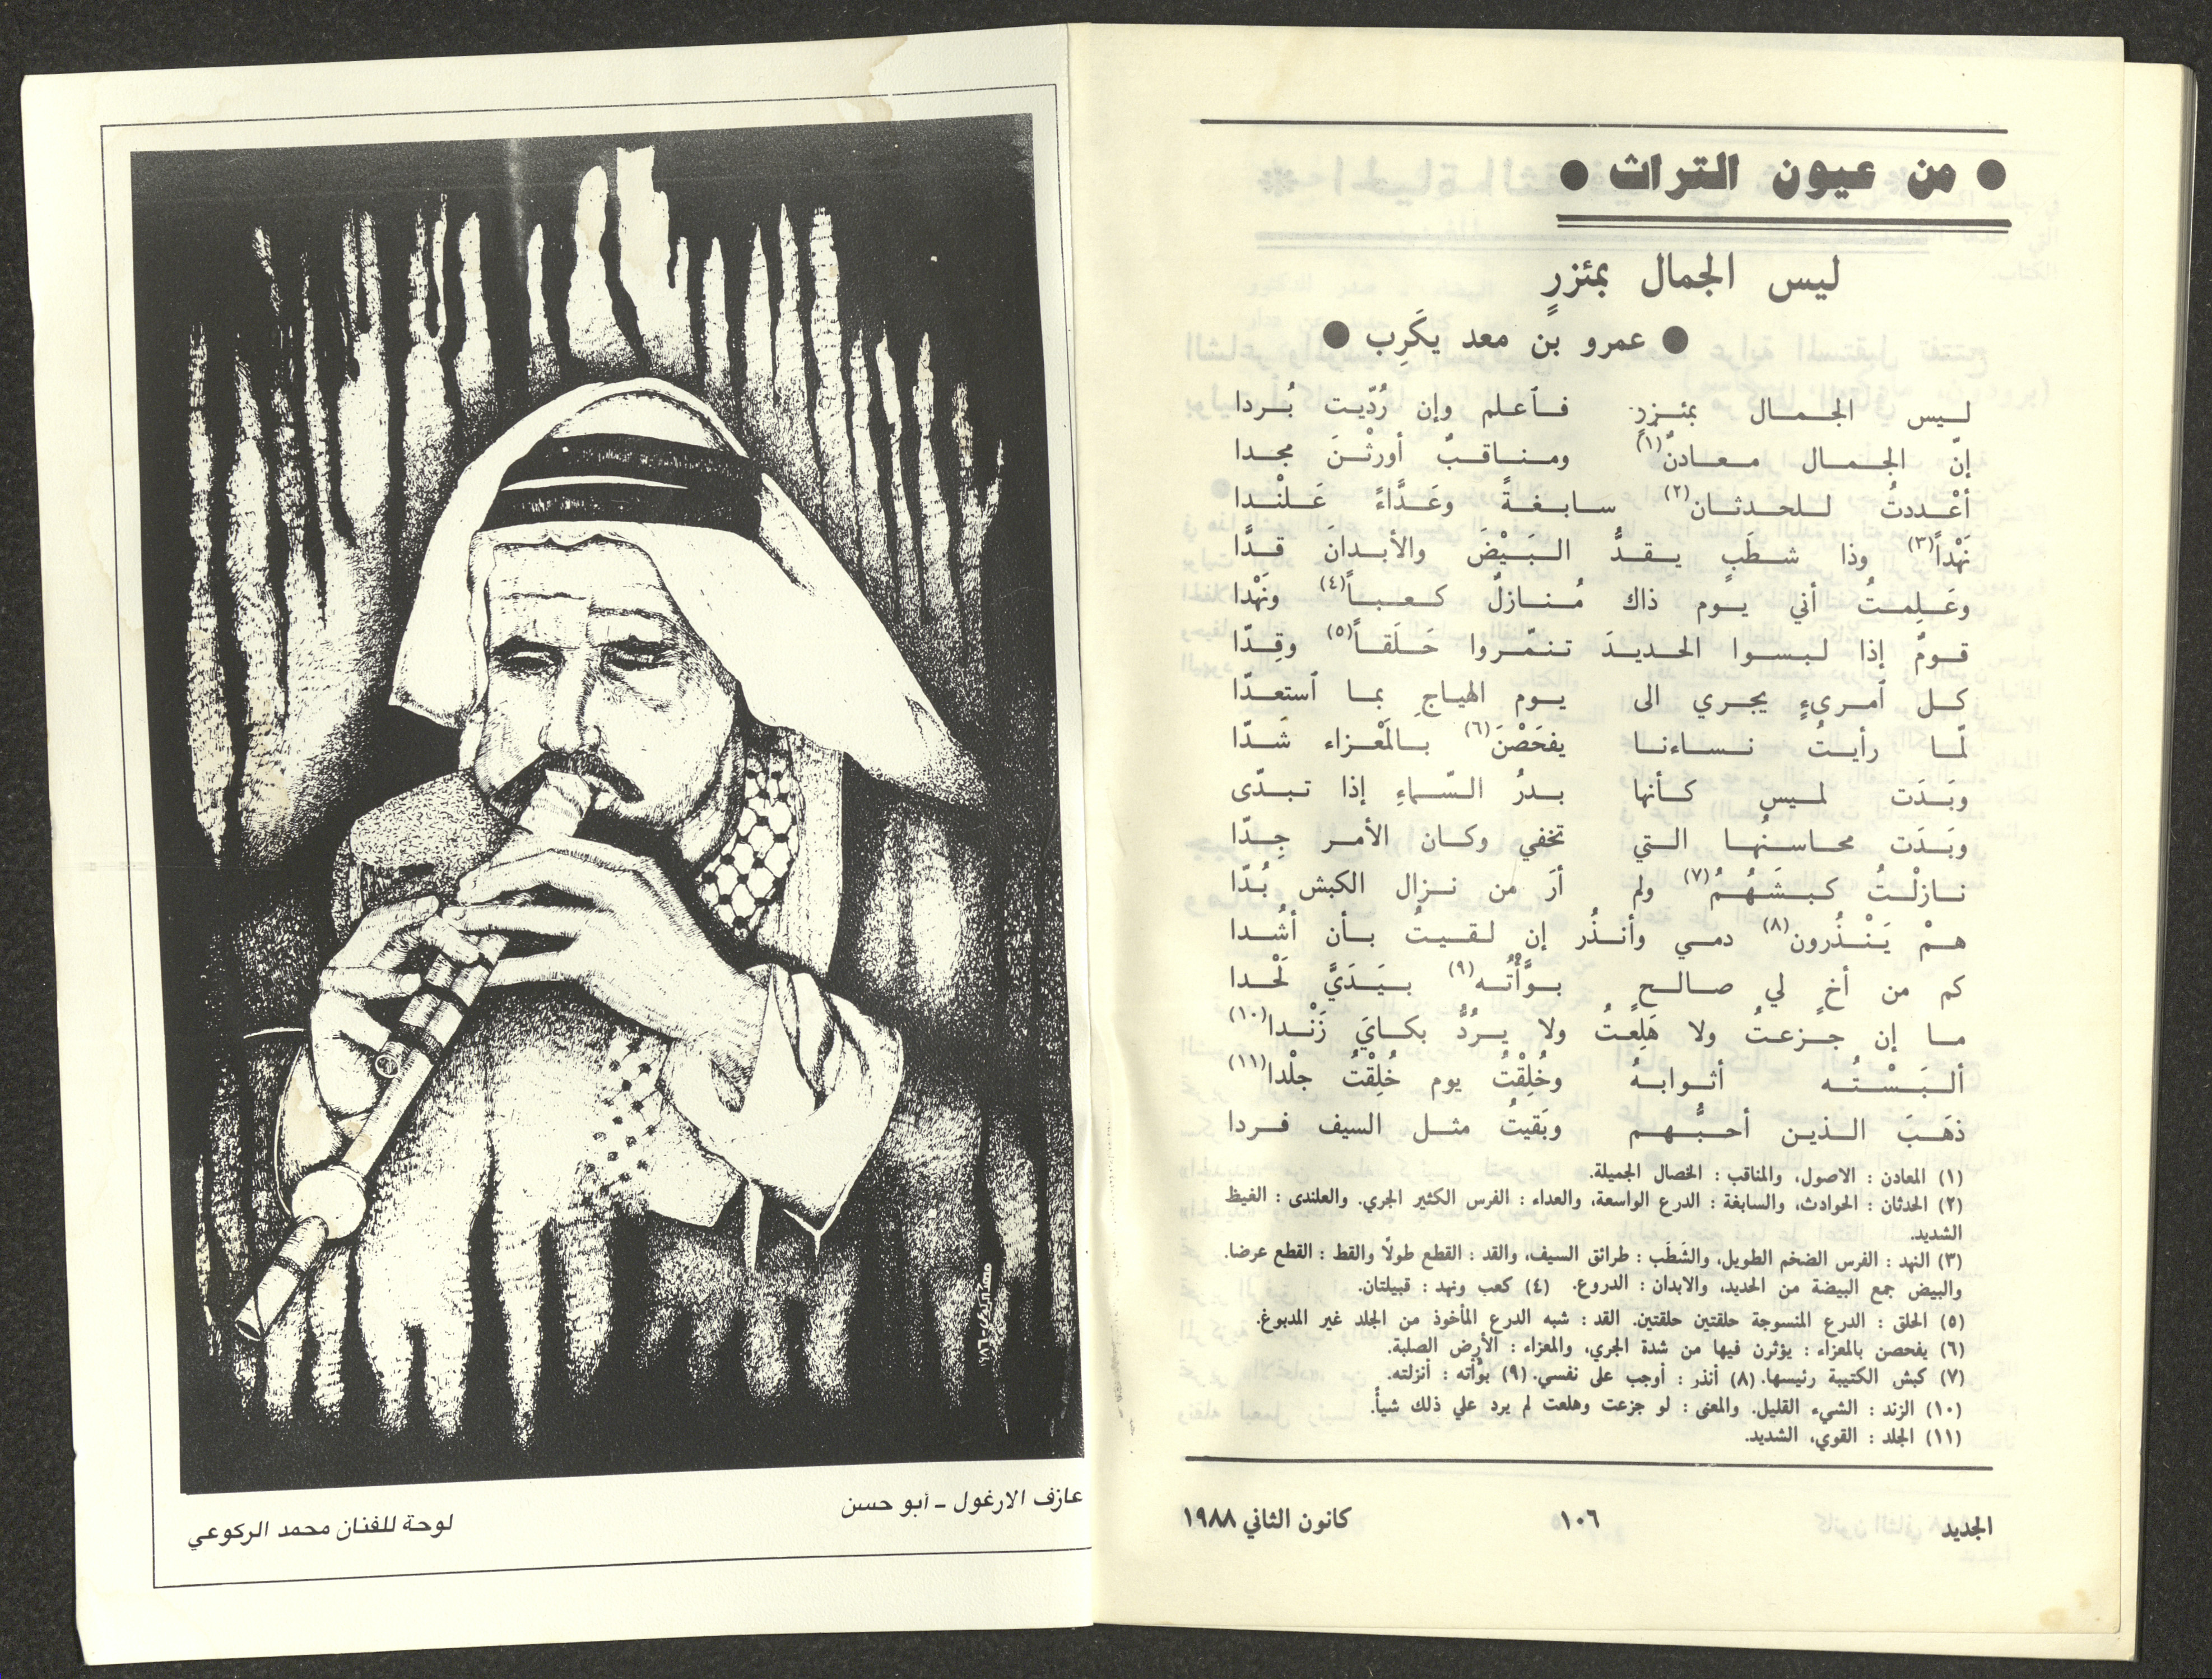 ● من عيون التراث ●
ليس الجمال بمئزرٍ
● عمرو بن معد يكَرِب ●
ليس الجمال بمئزرٍ فٱعلم وإن رُدّيت بُردا
إنّ الجمال معادنٌ(١) ومناقبٌ أورثْنَ مجدا
أعْددتُ للحدثان(٢) سابغةً وعَدَّاءً عَلنْدا
نَهْداً(٣) وذا شطَبٍ يقدُّ البَيْضَ والأبدانَ قدَّا
وعَلِمتُ أني يوم ذاك مُنازلٌ كعباً(٤) ونَهْدا
قومٌ إذا لبسوا الحديدَ تنمّروا حَلَقاً(٥) وقِدّا
كل ٱمرىءٍ يجري الى يوم الهياجِ بما ٱستعدّا
لمّا رأيتُ نساءنا يفحَصْنَ(٦) بالمَعْزاء شَدّا
وبَدَت لميس كأنها بدرُ السّماءِ إذا تبدّى
وبَدَت محاسنُها التي تخفي وكان الأمر جِدّا
نازلْتُ كبشَهُمُ(٧) ولم أرَ من نزال الكبش بُدّا
همْ يَنْذُرون(٨) دمي وأنذُر إن لقيتُ بأن أشُدا
كم من أخٍ لي صالحٍ بوَّأتُه(٩) بيَدَيَّ لَحْدا
ما إن جزعتُ ولا هَلِعتُ ولا يرُدُّ بكايَ زَنْدا(١٠)
ألبَسْتُه أثوابهُ وخُلِقْتُ يوم خُلِقْتُ جلْدا(١١)
ذَهَبَ الذين أحبُّهم وبَقيتُ مثل السيف فردا
(١) المعادن : الاصول، والمناقب : الخصال الجميلة.
(٢) الحدثان : الحوادث، والسابغة : الدرع الواسعة، والعداء : الفرس الكثير الجري. والعلندى : الغيظ
الشديد.
(٣) النهد : الفرس الضخم الطويل، والشَطَب : طرائق السيف، والقد : القطع طولاً والقط : القطع عرضا.
والبيض جمع البيضة من الحديد، والابدان : الدروع. (٤) كعب ونهد : قبيلتان.
(٥) الحلق : الدرع المنسوجة حلقتين حلقتين. القد : شبه الدرع المأخوذ من الجلد غير المدبوغ.
(٦) يفحصن بالمعزاء : يؤثرن فيها من شدة الجري، والمعزاء : الأرض الصلبة.
(٧) كبش الكتيبة رئيسها. (٨) أنذر : أوجب على نفسي. (٩) بوّأته : أنزلته.
(١٠) الزند : الشيء القليل. والمعنى : لو جزعت وهلعت لم يرد علي ذلك شيأً.
(١١) الجلد : القوي، الشديد.
الجديد ١٠٦ كانون الثاني ١٩٨٨
عازف الارغول - أبو حسن
لوحة للفنان محمد الركوعي